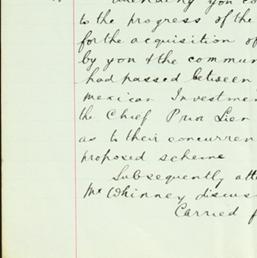 attending you co
to the progress of the
for the acquisition of
by you & the commun
had passed between
Mexican Investmen
the Chief Prior Lien
as to their concurren
proposed scheme
Subsequently att
Mr Whinney discus
Carried f